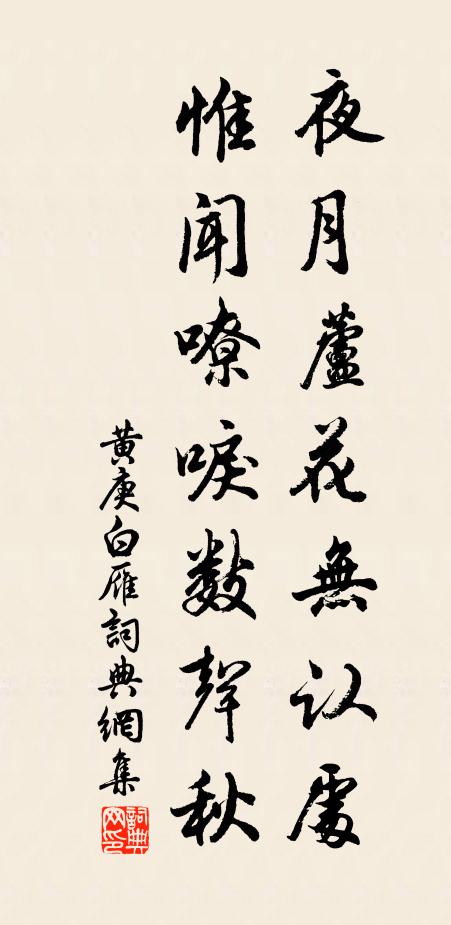 夜月蘆花無认處
惟闻嘹唳數聲秋
黄庚白雁詞典網集
詞典网印